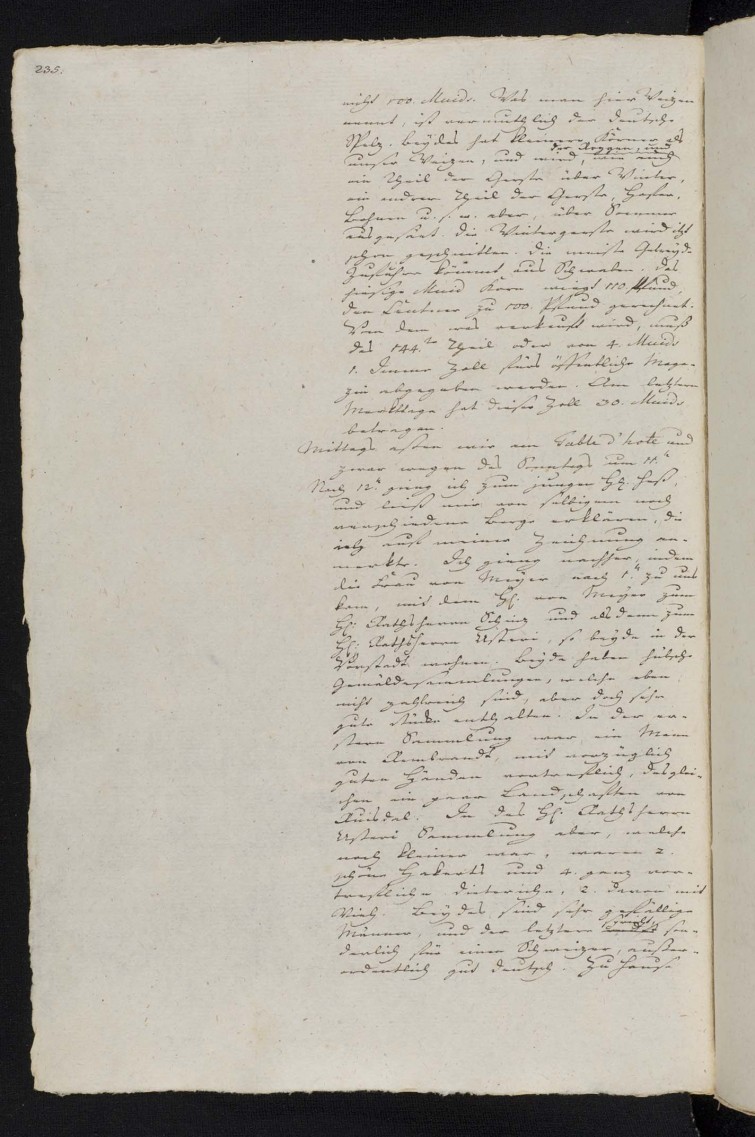 235.
nicht 100. Muids. Was man hier Weizen
nennt, ist vermuthlich der deutsche
Spelz. Beydes hat kleinere Körner als
der Roggen, und
unser Weizen, und wird, wie auch
ein Theil der Gerste über Winter,
ein andrer Theil der Gerste, Hafer,
Bohnen u. s. w. aber, über Sommer
ausgesäet. Die Wintergerste wird itzt
schon geschnitten. Die meiste Getreyde
Zufuhre kömmt aus Schwaben. Das
hiesige Muid Korn wiegt 110. Pfund,
den Centner zu 100. Pfund gerechnet.
Von dem was verkauft wird, muß
das 144.te Theil oder von 4. Muids
1. Immer Zoll fürs öffentliche Maga-
zin abgegeben werden. Am letztern
Markttage hat dieser Zoll 30. Muids
betragen.
Mittags aßen wir am Table d'hote und
zwar wegen des Sonntags um 11.u
Nach 12.u gieng ich zum jungen H. Heß,
und ließ mir von selbigem noch
verschiedene Berge erklären, die
ich auf meiner Zeichnung an-
merkte. Ich gieng nachher, indem
die Frau von Meyer nach 1.u zu uns
kam, mit dem H. von Meyer zum
H. Rathsherrn Schinz und alsdenn zum
H. Rathsherrn Usteri, so beyde in der
Vorstadt wohnen. Beyde haben hübsche
Gemäldesammlungen, welche eben
nicht zahlreich sind, aber doch sehr
gute Stücke enthalten. In der er-
stern Sammlung war ein Mann
von Rembrandt, mit vorzüglich
guten Händen vortreflich, desglei-
chen ein paar Landschaften von
Ruisdal. In des H. Rathsherrn
Usteri Sammlung aber, welche
noch kleiner war, waren 2.
schöne Hakerts und 4. ganz vor-
trefliche Dieteriche, 2. davon mit
Vieh. Beydes sind sehr gefällige
spricht,
Männer, und der letztere son-
derlich für einen Schweizer, außer-
ordentlich gut deutsch. Zu Hause